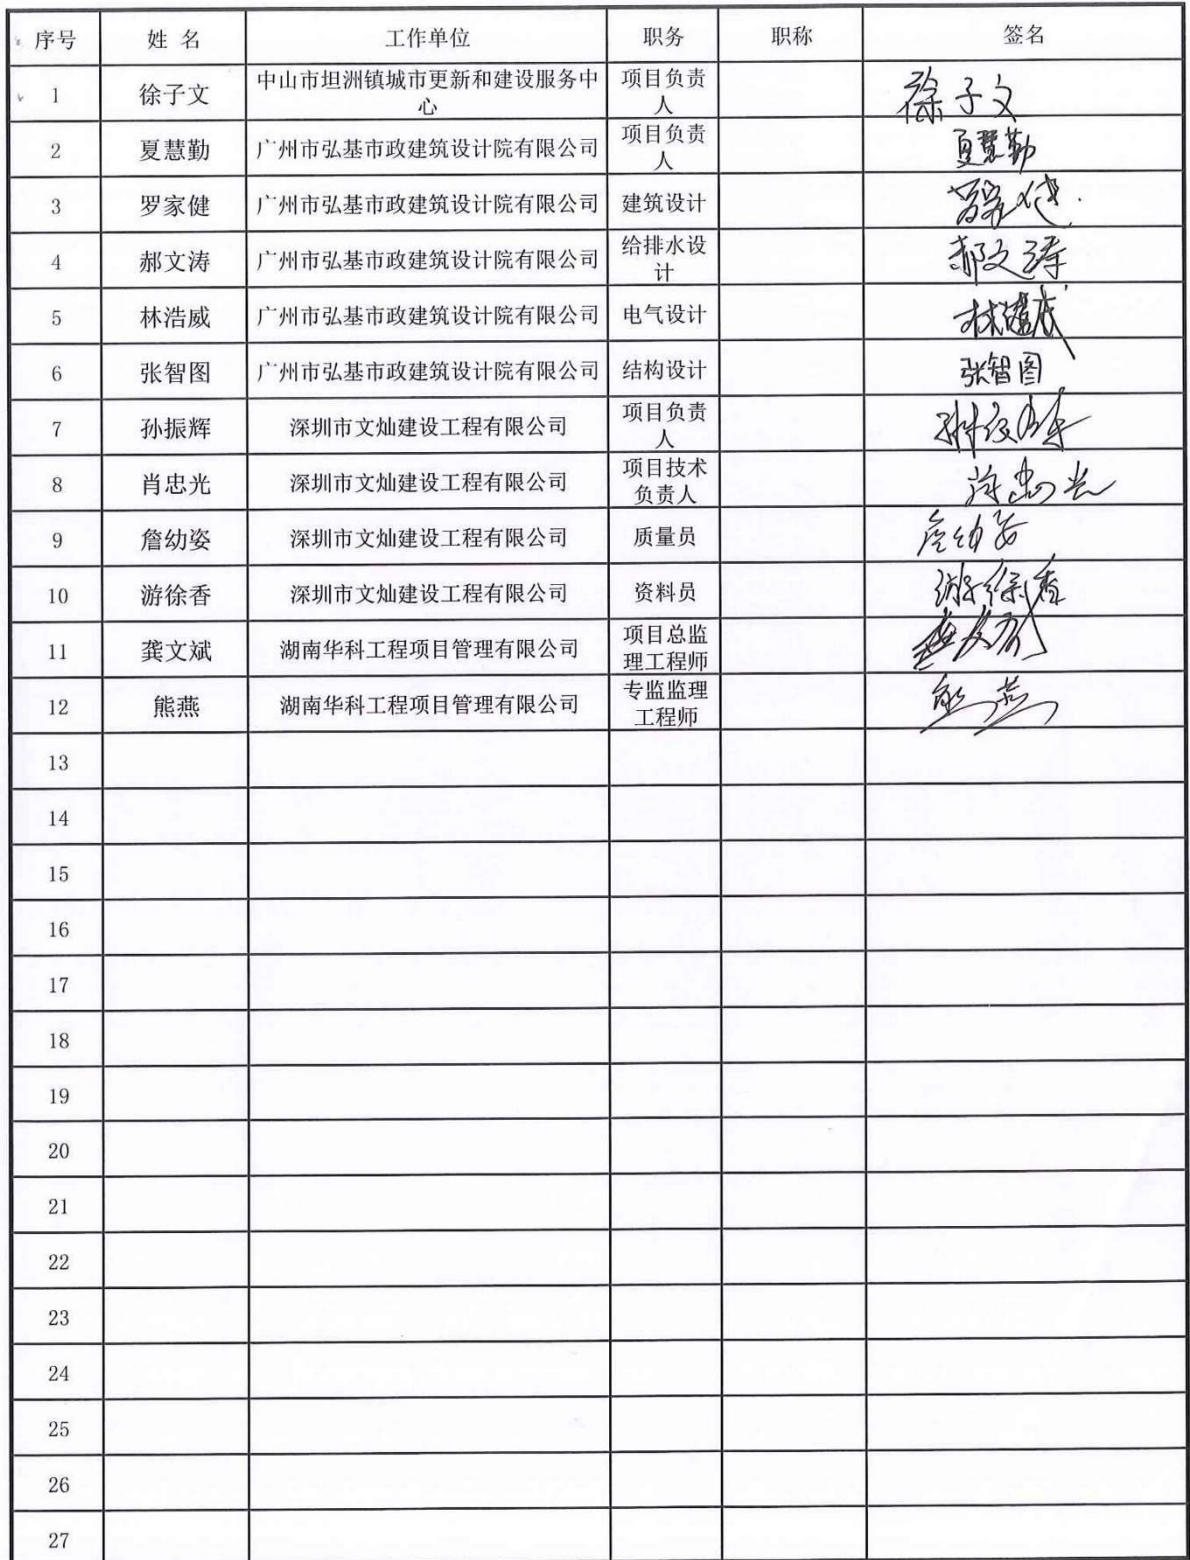 序号 姓 名 工作单位 职务 职称 签名
1 徐子文 中山市坦洲镇城市更新和建设服务中心 项目负责人 徐子文
2 夏慧勤 广州市弘基市政建筑设计院有限公司 项目负责人 夏慧勤
3 罗家健 广州市弘基市政建筑设计院有限公司 建筑设计 罗家健
4 郝文涛 广州市弘基市政建筑设计院有限公司 给排水设计 郝文涛
5 林浩威 广州市弘基市政建筑设计院有限公司 电气设计 林浩威
6 张智图 广州市弘基市政建筑设计院有限公司 结构设计 张智图
7 孙振辉 深圳市文灿建设工程有限公司 项目负责人 孙振辉
8 肖忠光 深圳市文灿建设工程有限公司 项目技术负责人 肖忠光
9 詹幼姿 深圳市文灿建设工程有限公司 质量员 詹幼姿
10 游徐香 深圳市文灿建设工程有限公司 资料员 游徐香
11 龚文斌 湖南华科工程项目管理有限公司 项目总监理工程师 龚文斌
12 熊燕 湖南华科工程项目管理有限公司 专监监理工程师 熊燕
13
14
15
16
17
18
19
20
21
22
23
24
25
26
27